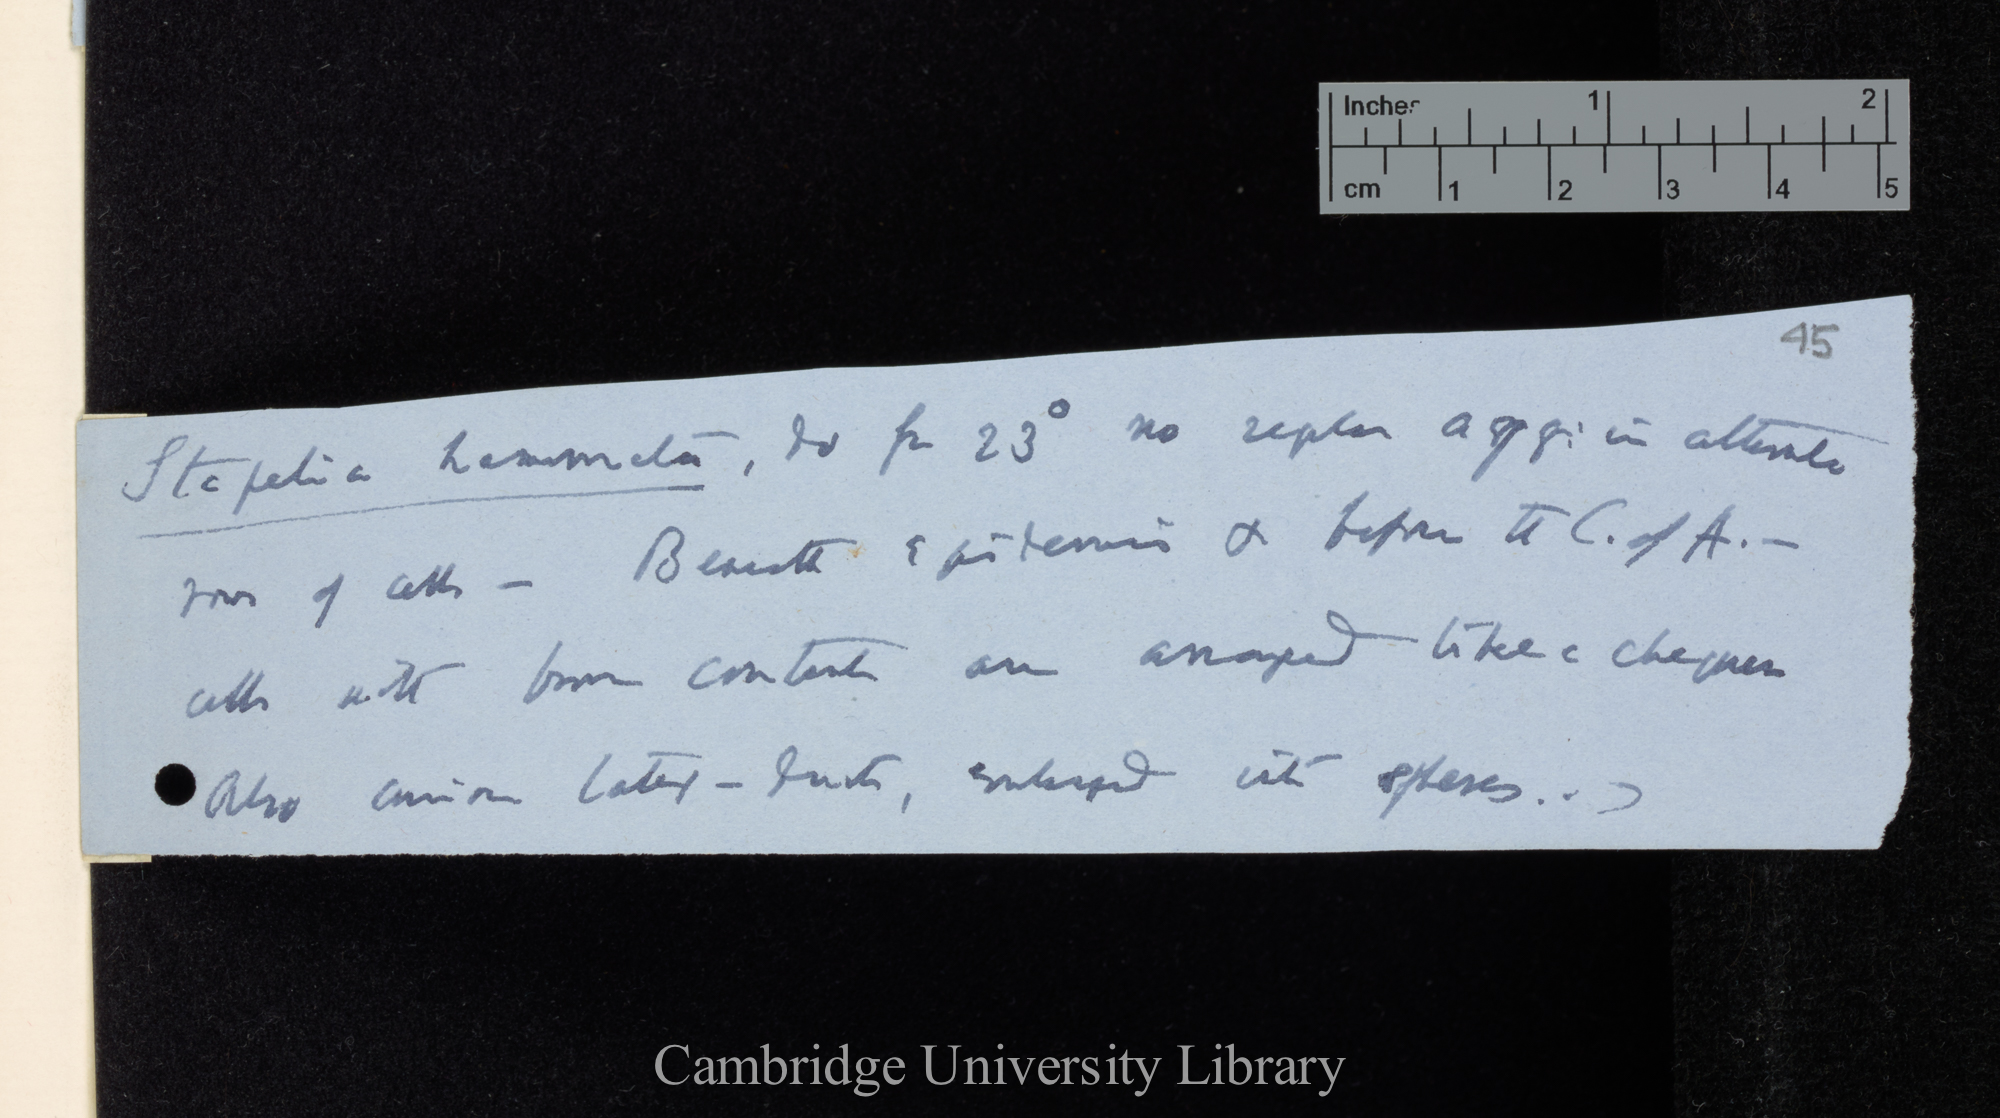 Inches 1 2
cm 1 2 3 4 5
45
Stapelia hamata, do for 23° no regular aggr: in alternate
rows of cells — Beneath epidermis & before the C. of A. —
cells with brown contents are arranged like a chequer
Also curious latex-ducts, enlarged into spheres..
Cambridge University Library